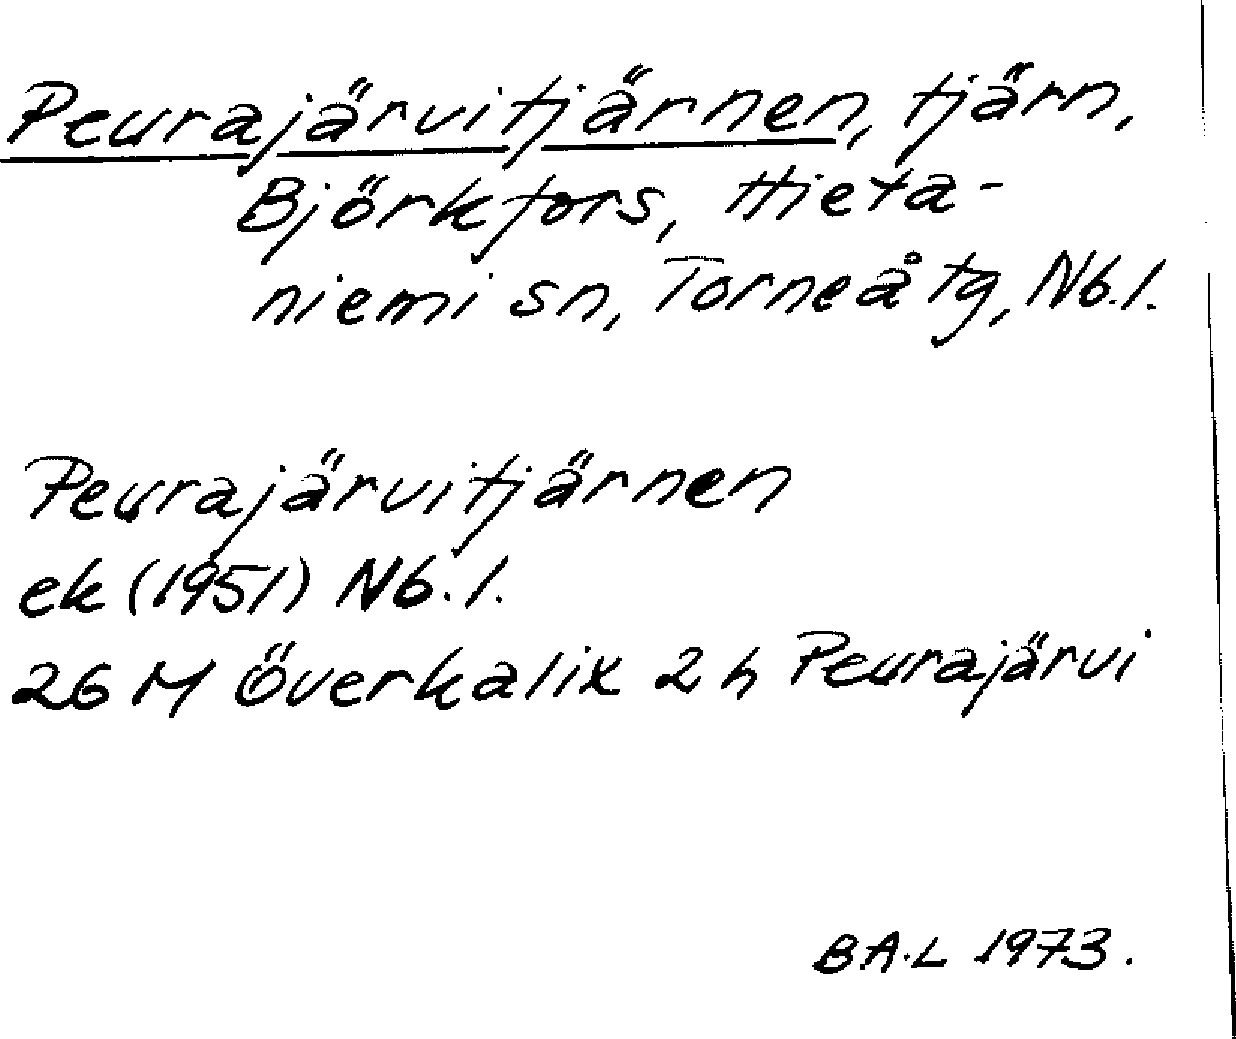 Peurajärvitjärnen, tjärn,
Björkfors, Hieta-
niemi sn, Torneå tg, Nb.l.
Peurajärvitjärnen
ek (1951) Nb.l.
26 M Överkalix 2 h Peurajärvi
B.A.L 1973.